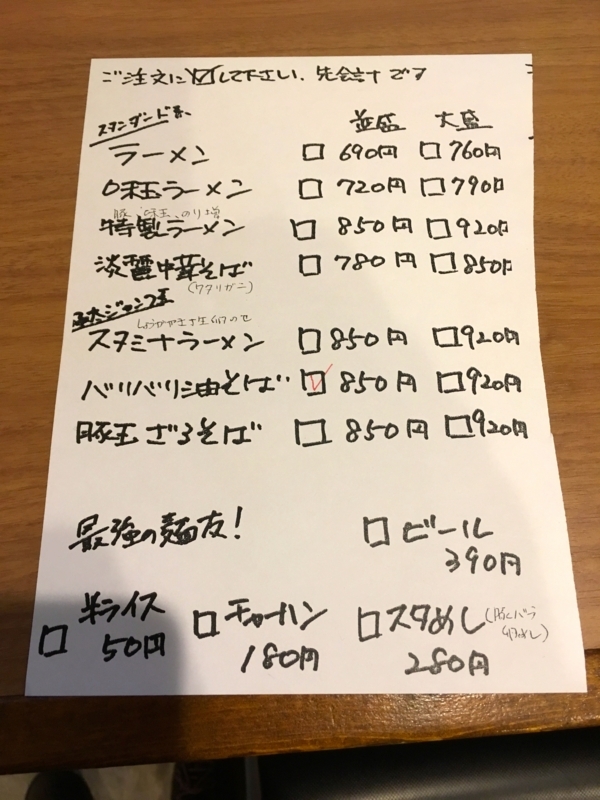 ご注文に☑して下さい、先会計です
スタンダード系
並盛 大盛
ラーメン □ 690円 □ 760円
味玉ラーメン □ 720円 □ 790円
豚、味玉、のり増
特製ラーメン □ 850円 □ 920円
淡麗中華そば □ 780円 □ 850円
(ワタリガニ)
ジャンク系
スタミナラーメン □ 850円 □ 920円
バリバリ油そば ☑ 850円 □ 920円
豚玉ざるそば □ 850円 □ 920円
最強の麺友! □ ビール
390円
□ 半ライス □ チャーハン □ スタめし
50円 180円 280円